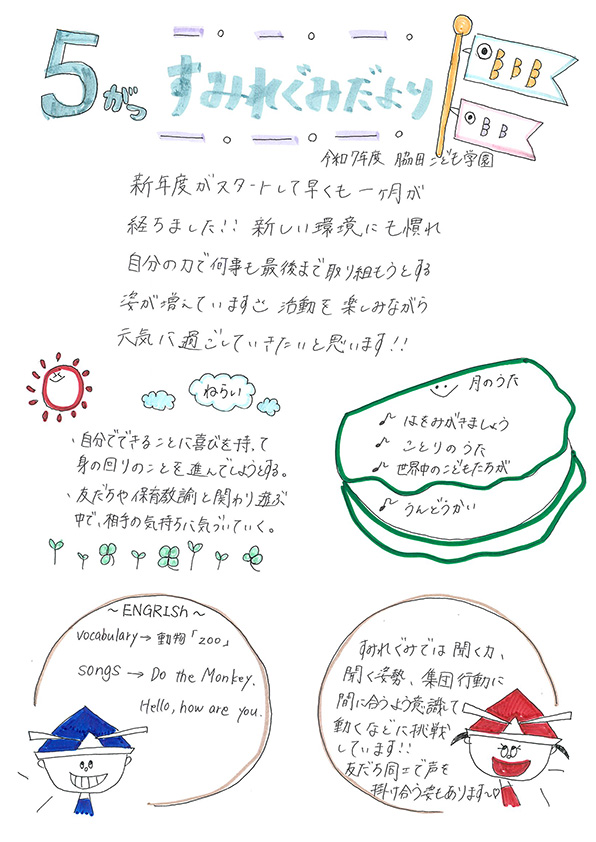 5がつ すみれぐみだより
令和7年度 脇田こども学園
新年度がスタートして早くも一ヶ月が
経ちました!! 新しい環境にも慣れ
自分の力で何事も最後まで取り組もうとする
姿が増えています 活動を楽しみながら
元気に過ごしていきたいと思います!!
ねらい
・自分でできることに喜びを持って
身の回りのことを進んでしようとする。
・友だちや保育教諭と関わり遊ぶ
中で、相手の気持ちに気づいていく。
月のうた
♪ はをみがきましょう
♪ ことりのうた
♪ 世界中のこどもたちが
♪ うんどうかい
~ENGRISh~
vocabulary→動物「zoo」
songs → Do the Monkey.
Hello, how are you.
すみれぐみでは聞く力、
聞く姿勢、集団行動に
間に合うよう意識して
動くなどに挑戦
しています!!
友だち同士で声を
掛け合う姿もあります~♡